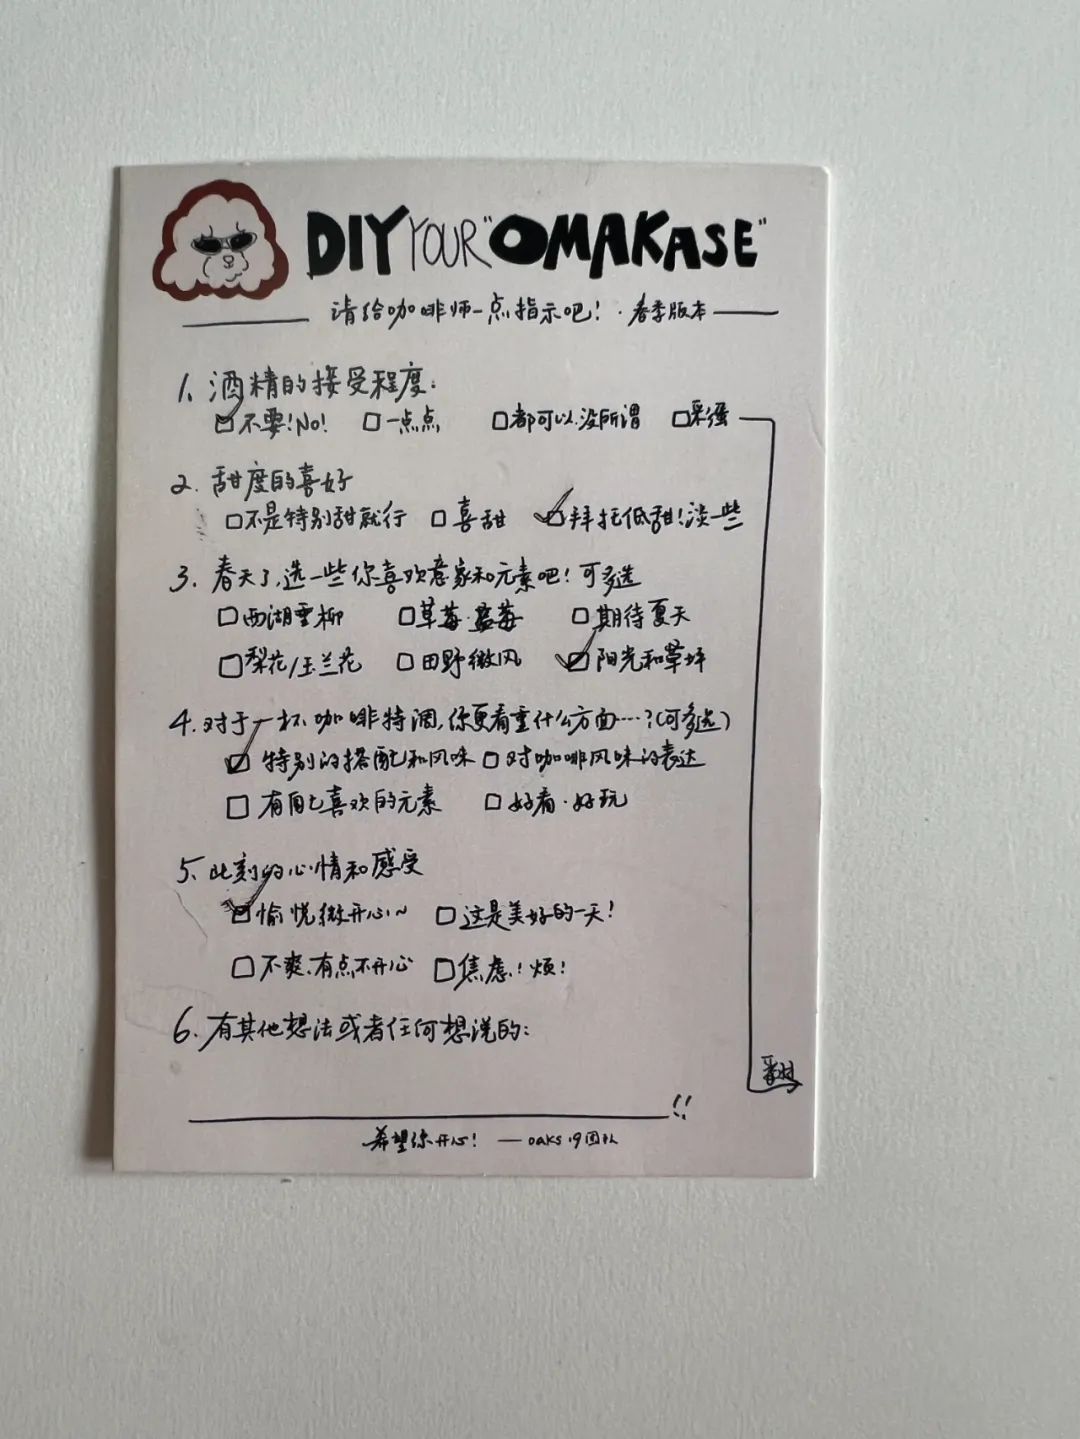 DIY YOUR "OMAKASE"
请给咖啡师一点指示吧！·春季版本
1、酒精的接受程度：
不要！No！ 一点点 都可以.没所谓 来强
2. 甜度的喜好
不是特别甜就行 喜甜 拜托低甜！淡一些
3. 春天了，选一些你喜欢意象和元素吧！可多选
西湖垂柳 草莓·蓝莓 期待夏天
梨花/玉兰花 田野微风 阳光和草坪
4. 对于一杯咖啡特调，你更看重什么方面…？（可多选）
特别的搭配和风味 对咖啡风味的表达
有自己喜欢的元素 好看·好玩
5、此刻的心情和感受
愉悦微开心~ 这是美好的一天！
不爽、有点不开心 焦虑！烦！
6. 有其他想法或者任何想说的：
翻
!!
希望你开心！ —oaks 19团队